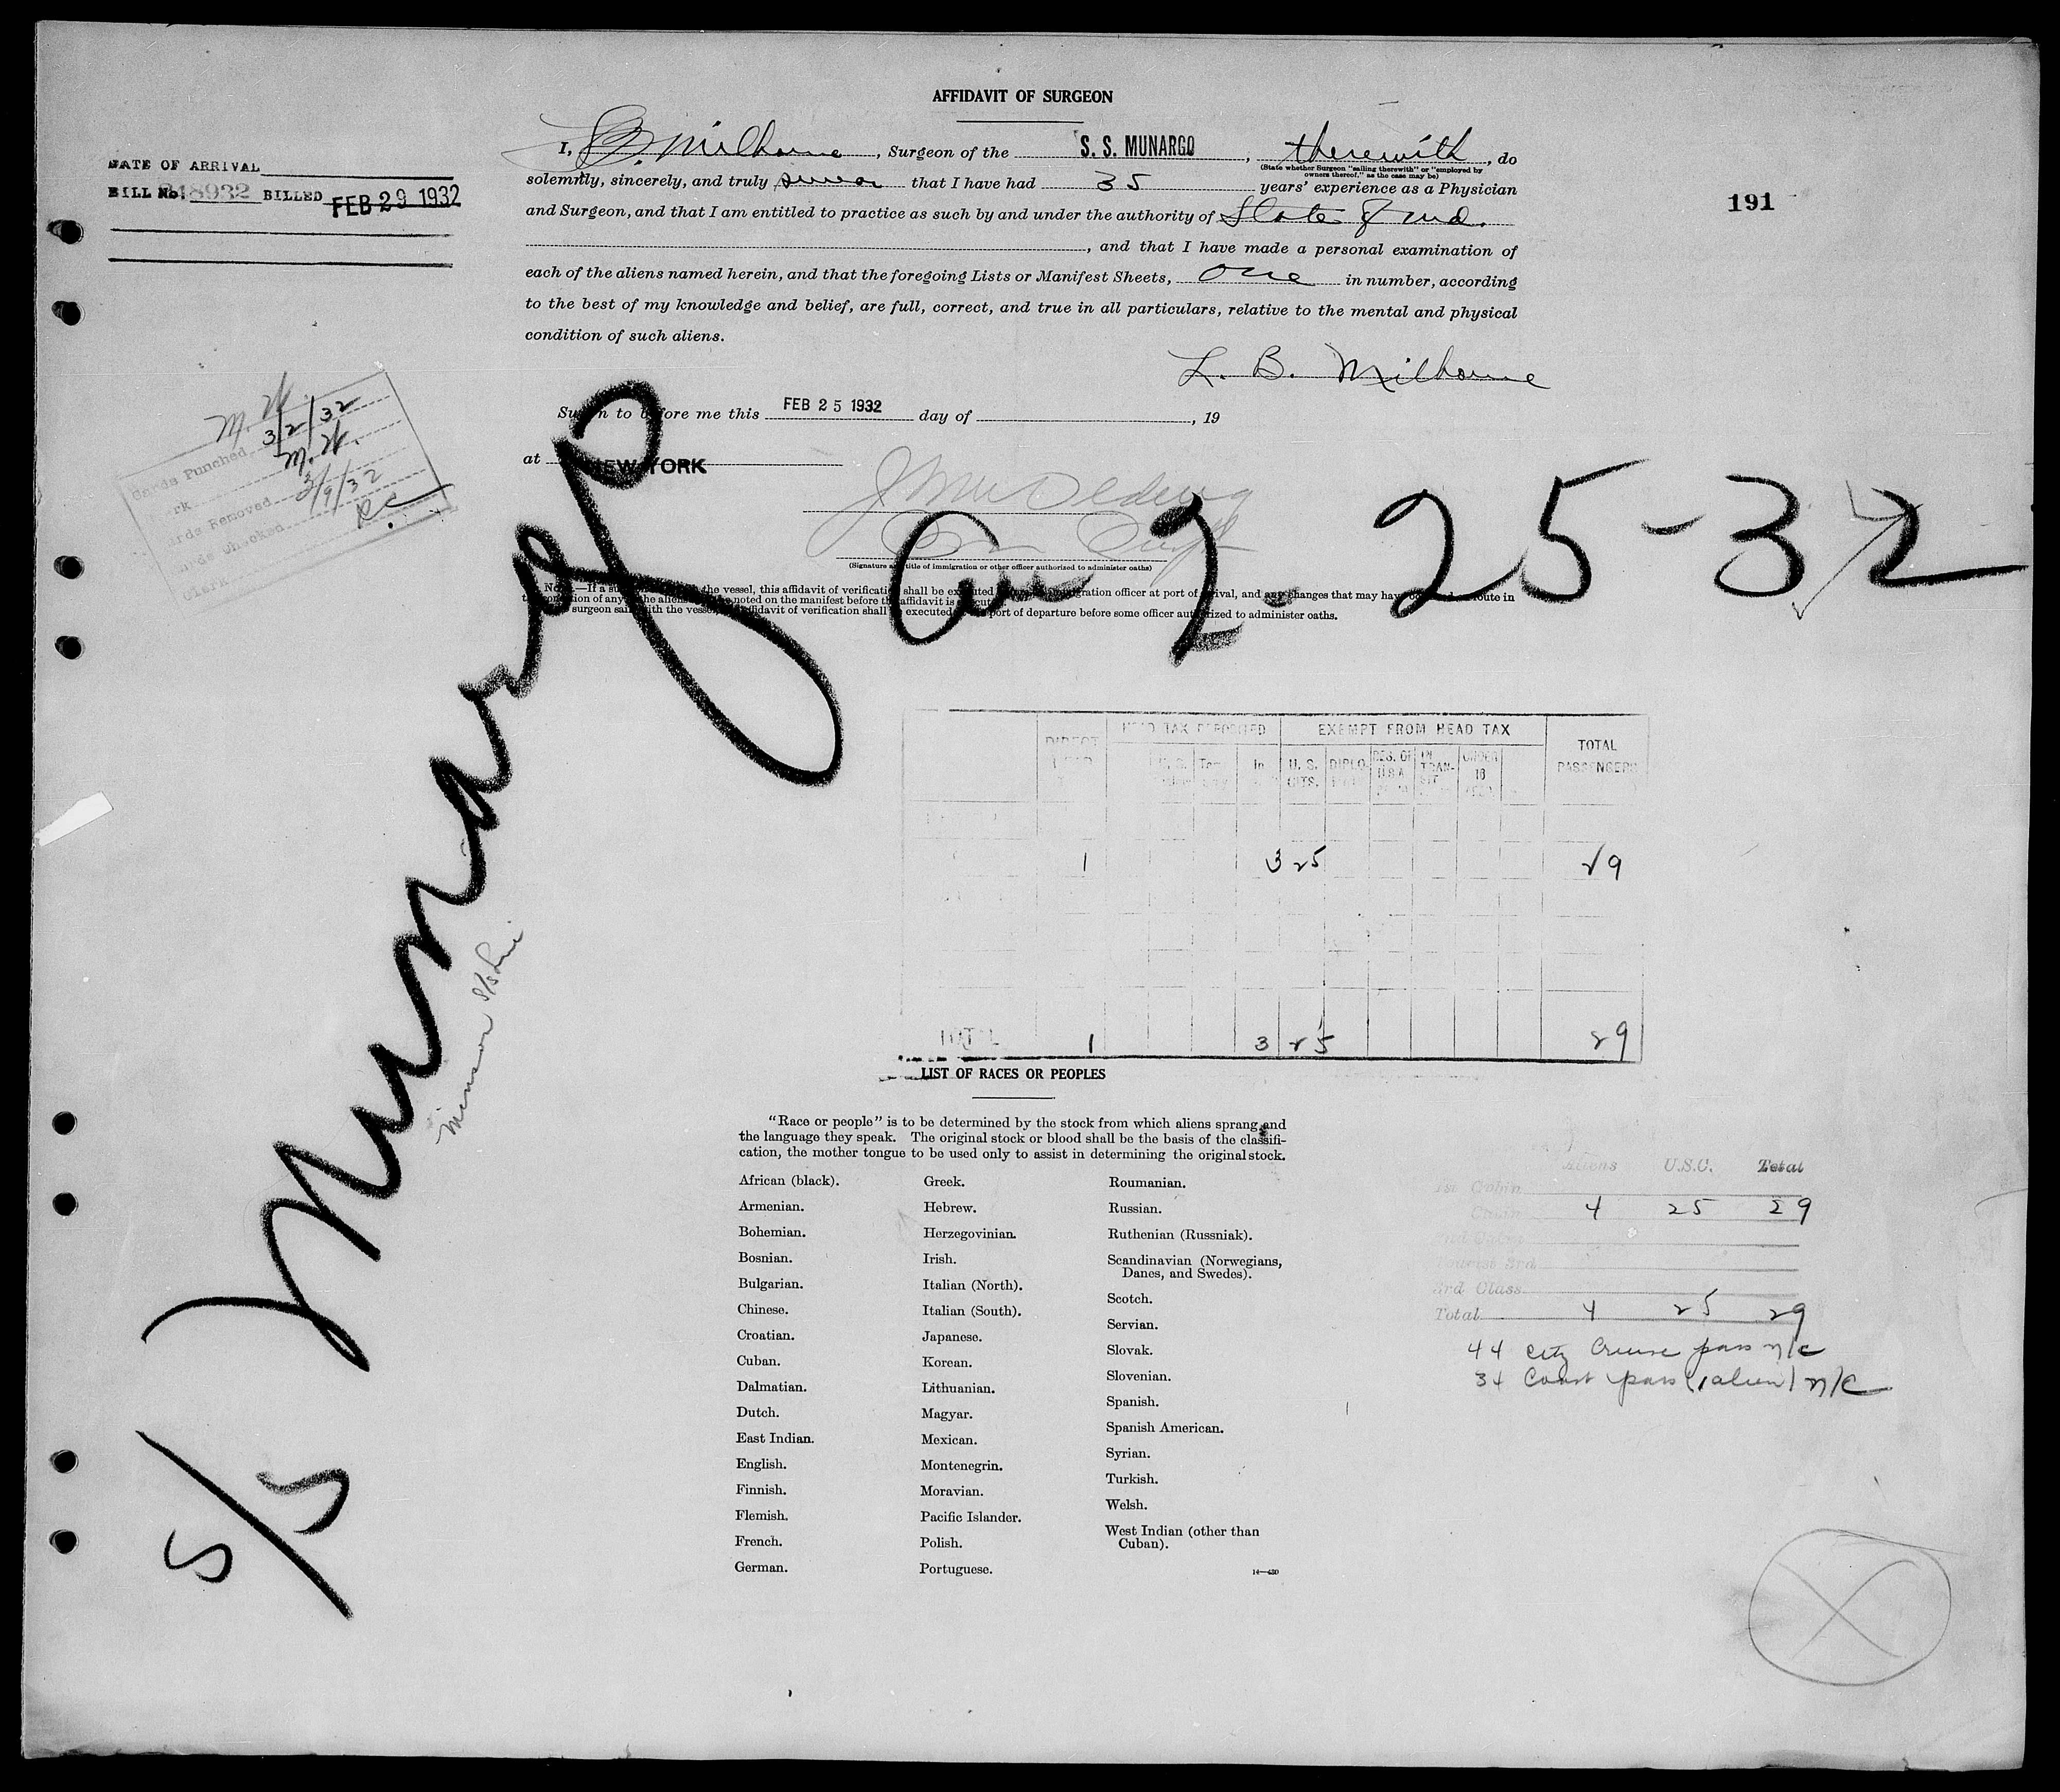 AFFIDAVIT OF SURGEON
DATE OF ARRIVAL
BILL No. 48932 BILLED FEB 29 1932
191
I, L. B. Milhourne, Surgeon of the S. S. MUNARGO, therewith, do
(State whether Surgeon "sailing therewith" or "employed by
owners thereof," as the case may be)
solemnly, sincerely, and truly swear that I have had 35 years' experience as a Physician
and Surgeon, and that I am entitled to practice as such by and under the authority of State of Md.
, and that I have made a personal examination of
each of the aliens named herein, and that the foregoing Lists or Manifest Sheets, one in number, according
to the best of my knowledge and belief, are full, correct, and true in all particulars, relative to the mental and physical
condition of such aliens.
L. B. Milhourne
Sworn to before me this FEB 25 1932 day of , 19
at NEW YORK
(Signature and title of immigration or other officer authorized to administer oaths)
Cards Punched 3/2/32
M. H.
Cards Removed 3/9/32
Cards Checked RC
Clerk
the vessel, this affidavit of verification shall be executed
immigration officer at port of arrival, and any changes that may have
noted on the manifest before the affidavit is
surgeon sails with the vessel affidavit of verification shall be executed port of departure before some officer authorized to administer oaths.
Arr 2-25-32
S/S Munargo
Munson S/S Line
HEAD TAX DEPOSITED EXEMPT FROM HEAD TAX TOTAL PASSENGERS
DIRECT
U. S. CITS. DIPLO. RES. OF U.S.A. IN TRANSIT UNDER 16
1 3 25 29
TOTAL 1 3 25 29
LIST OF RACES OR PEOPLES
"Race or people" is to be determined by the stock from which aliens sprang and
the language they speak. The original stock or blood shall be the basis of the classifi-
cation, the mother tongue to be used only to assist in determining the original stock.
African (black).
Armenian.
Bohemian.
Bosnian.
Bulgarian.
Chinese.
Croatian.
Cuban.
Dalmatian.
Dutch.
East Indian.
English.
Finnish.
Flemish.
French.
German.
Greek.
Hebrew.
Herzegovinian.
Irish.
Italian (North).
Italian (South).
Japanese.
Korean.
Lithuanian.
Magyar.
Mexican.
Montenegrin.
Moravian.
Pacific Islander.
Polish.
Portuguese.
Roumanian.
Russian.
Ruthenian (Russniak).
Scandinavian (Norwegians,
Danes, and Swedes).
Scotch.
Servian.
Slovak.
Slovenian.
Spanish.
Spanish American.
Syrian.
Turkish.
Welsh.
West Indian (other than
Cuban).
14—430
Aliens U.S.C. Total
1st Cabin
Cabin 4 25 29
Tourist 3rd
3rd Class
Total 4 25 29
44 City Cruise pass n/c
34 Coast pass (1 alien) n/c